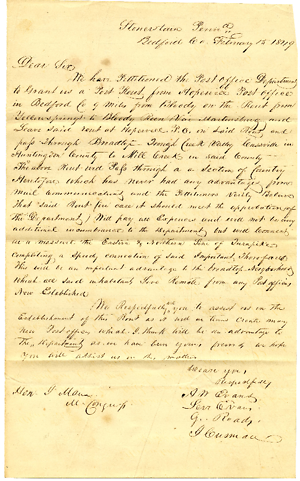 Stonerstown Penna
Bedford Co February 15 1849
Dear Sir,
We have Petitioned the Post Office Department
to Grant us a Post Rout from Hopewell Post office
in Bedford Co 9 miles from Bloody on the Rout from
to Bloody Run Via Martinsburg will
Leave said rout at Hopewell P.O. in said and
pass through Broadtop Tough Creek Valley Cassville in
Huntingdon County to Mill Creek in said County
The above Rout will Pass through a Section of Country
Heretofore which has never had any advantage from
Mail communication and the Petitioners
That said Rout for can it should meet the approbation of
the Department, Will pay its Expences and will not be any
additional incumbrance to the Department, but will Connect
in a measure the Eastern & Northern line of Turnpike
Completing a Speedy connection of said Important Thorofares
This will be an important advantage to the Broadtop Neighborhood
which all said inhabitants live Remote from any Post offices
Now Established
We Respectfully you, to assist us in the
Establishment of this Rout as it will in time Create many
new Post offices, which I think will be an advantage to
the Department as we have been yours, friends we hope
you will assist us in the matter
We are yrs,
Respectfully
Hon J Mann
M Congress
A W Evans
Levi Evans
G Roads